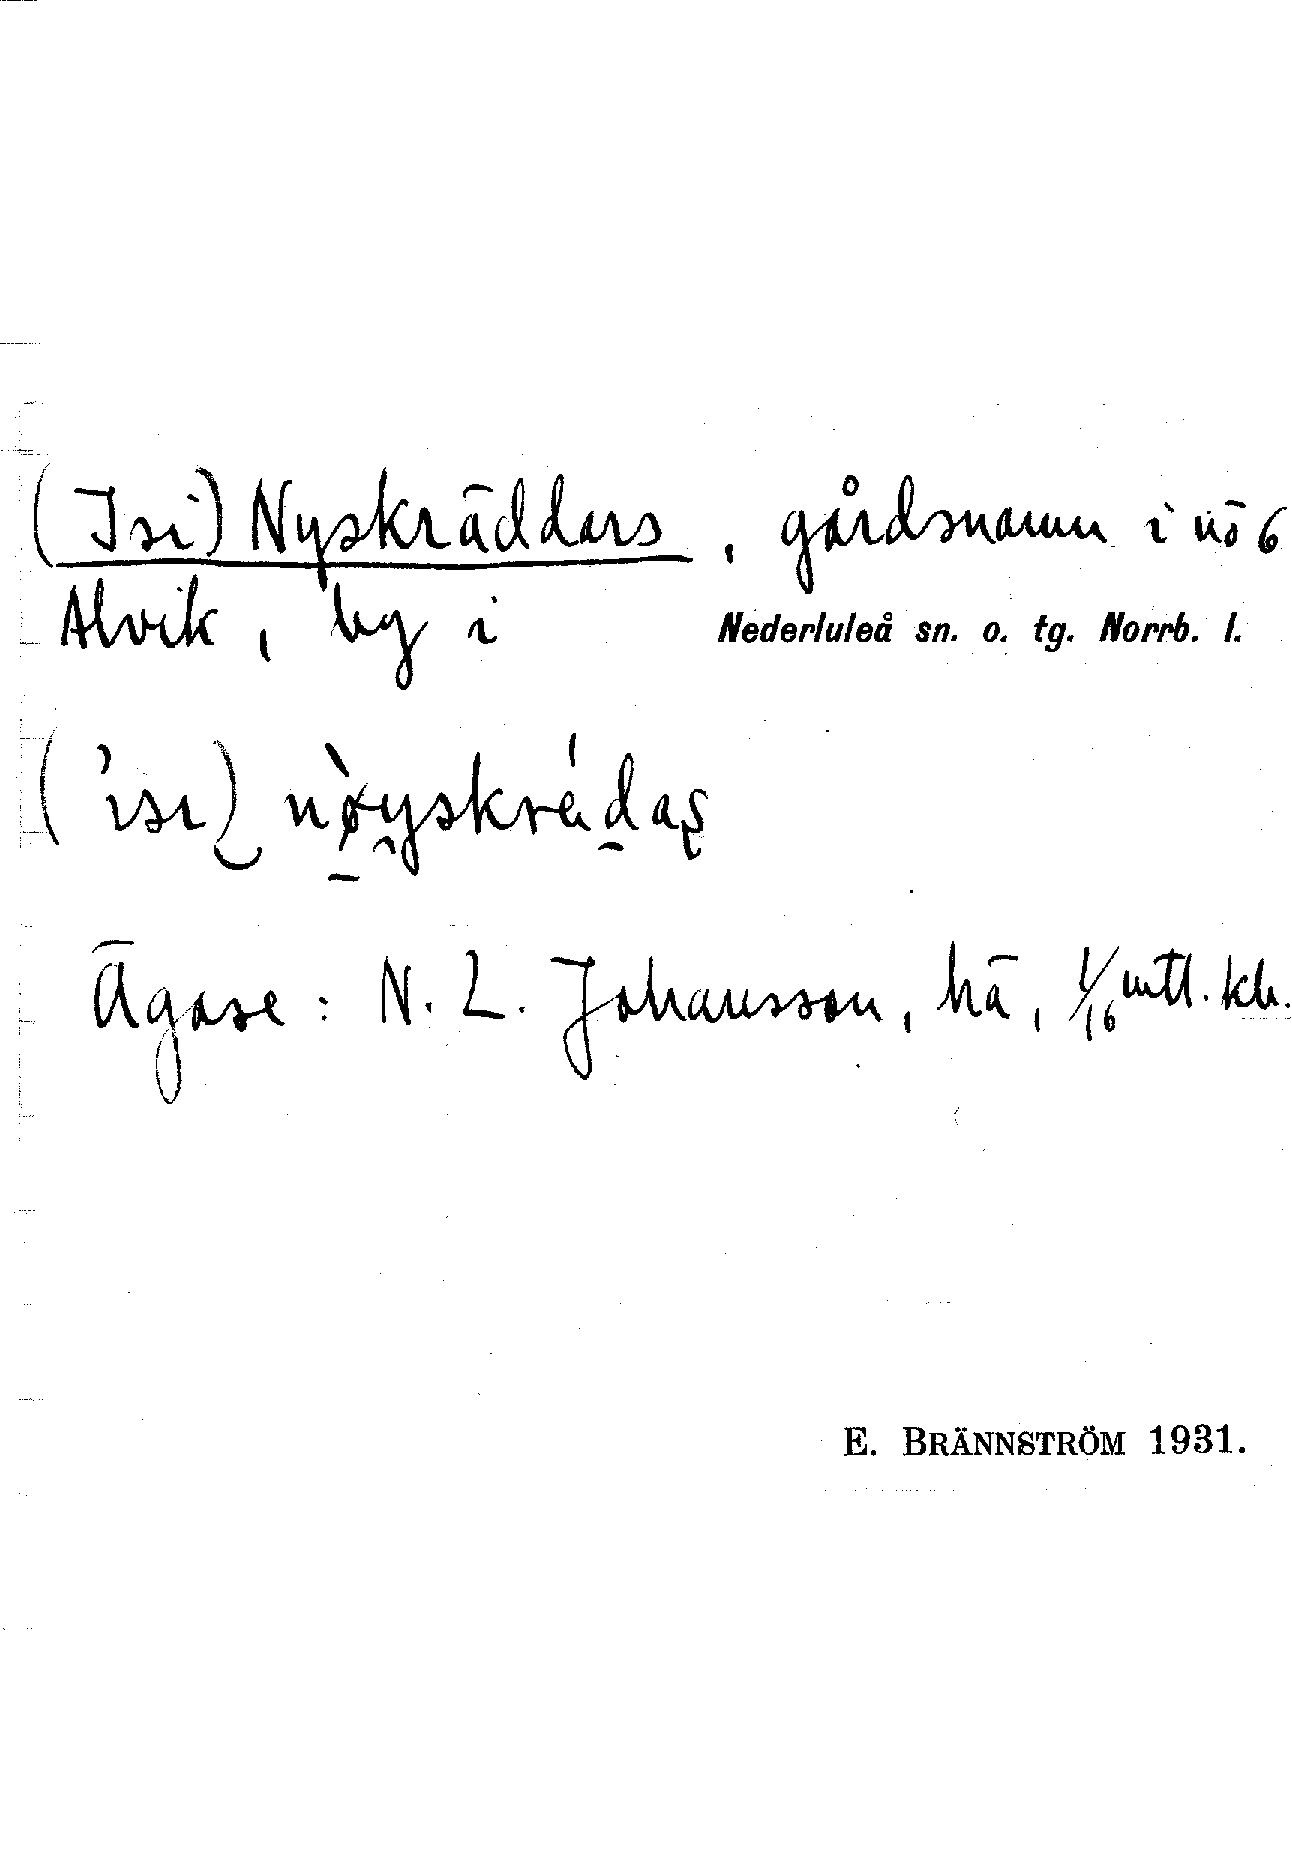 (Isi) Nyskräddars, gårdsnamn i nö 6
Alvik, by i Nederluleå sn. o. tg. Norrb. l.
('isi) nø̀yskrédaş
Ägare: N. L. Johansson, hä, 1/16 mtl. kh.
E. BRÄNNSTRÖM 1931.